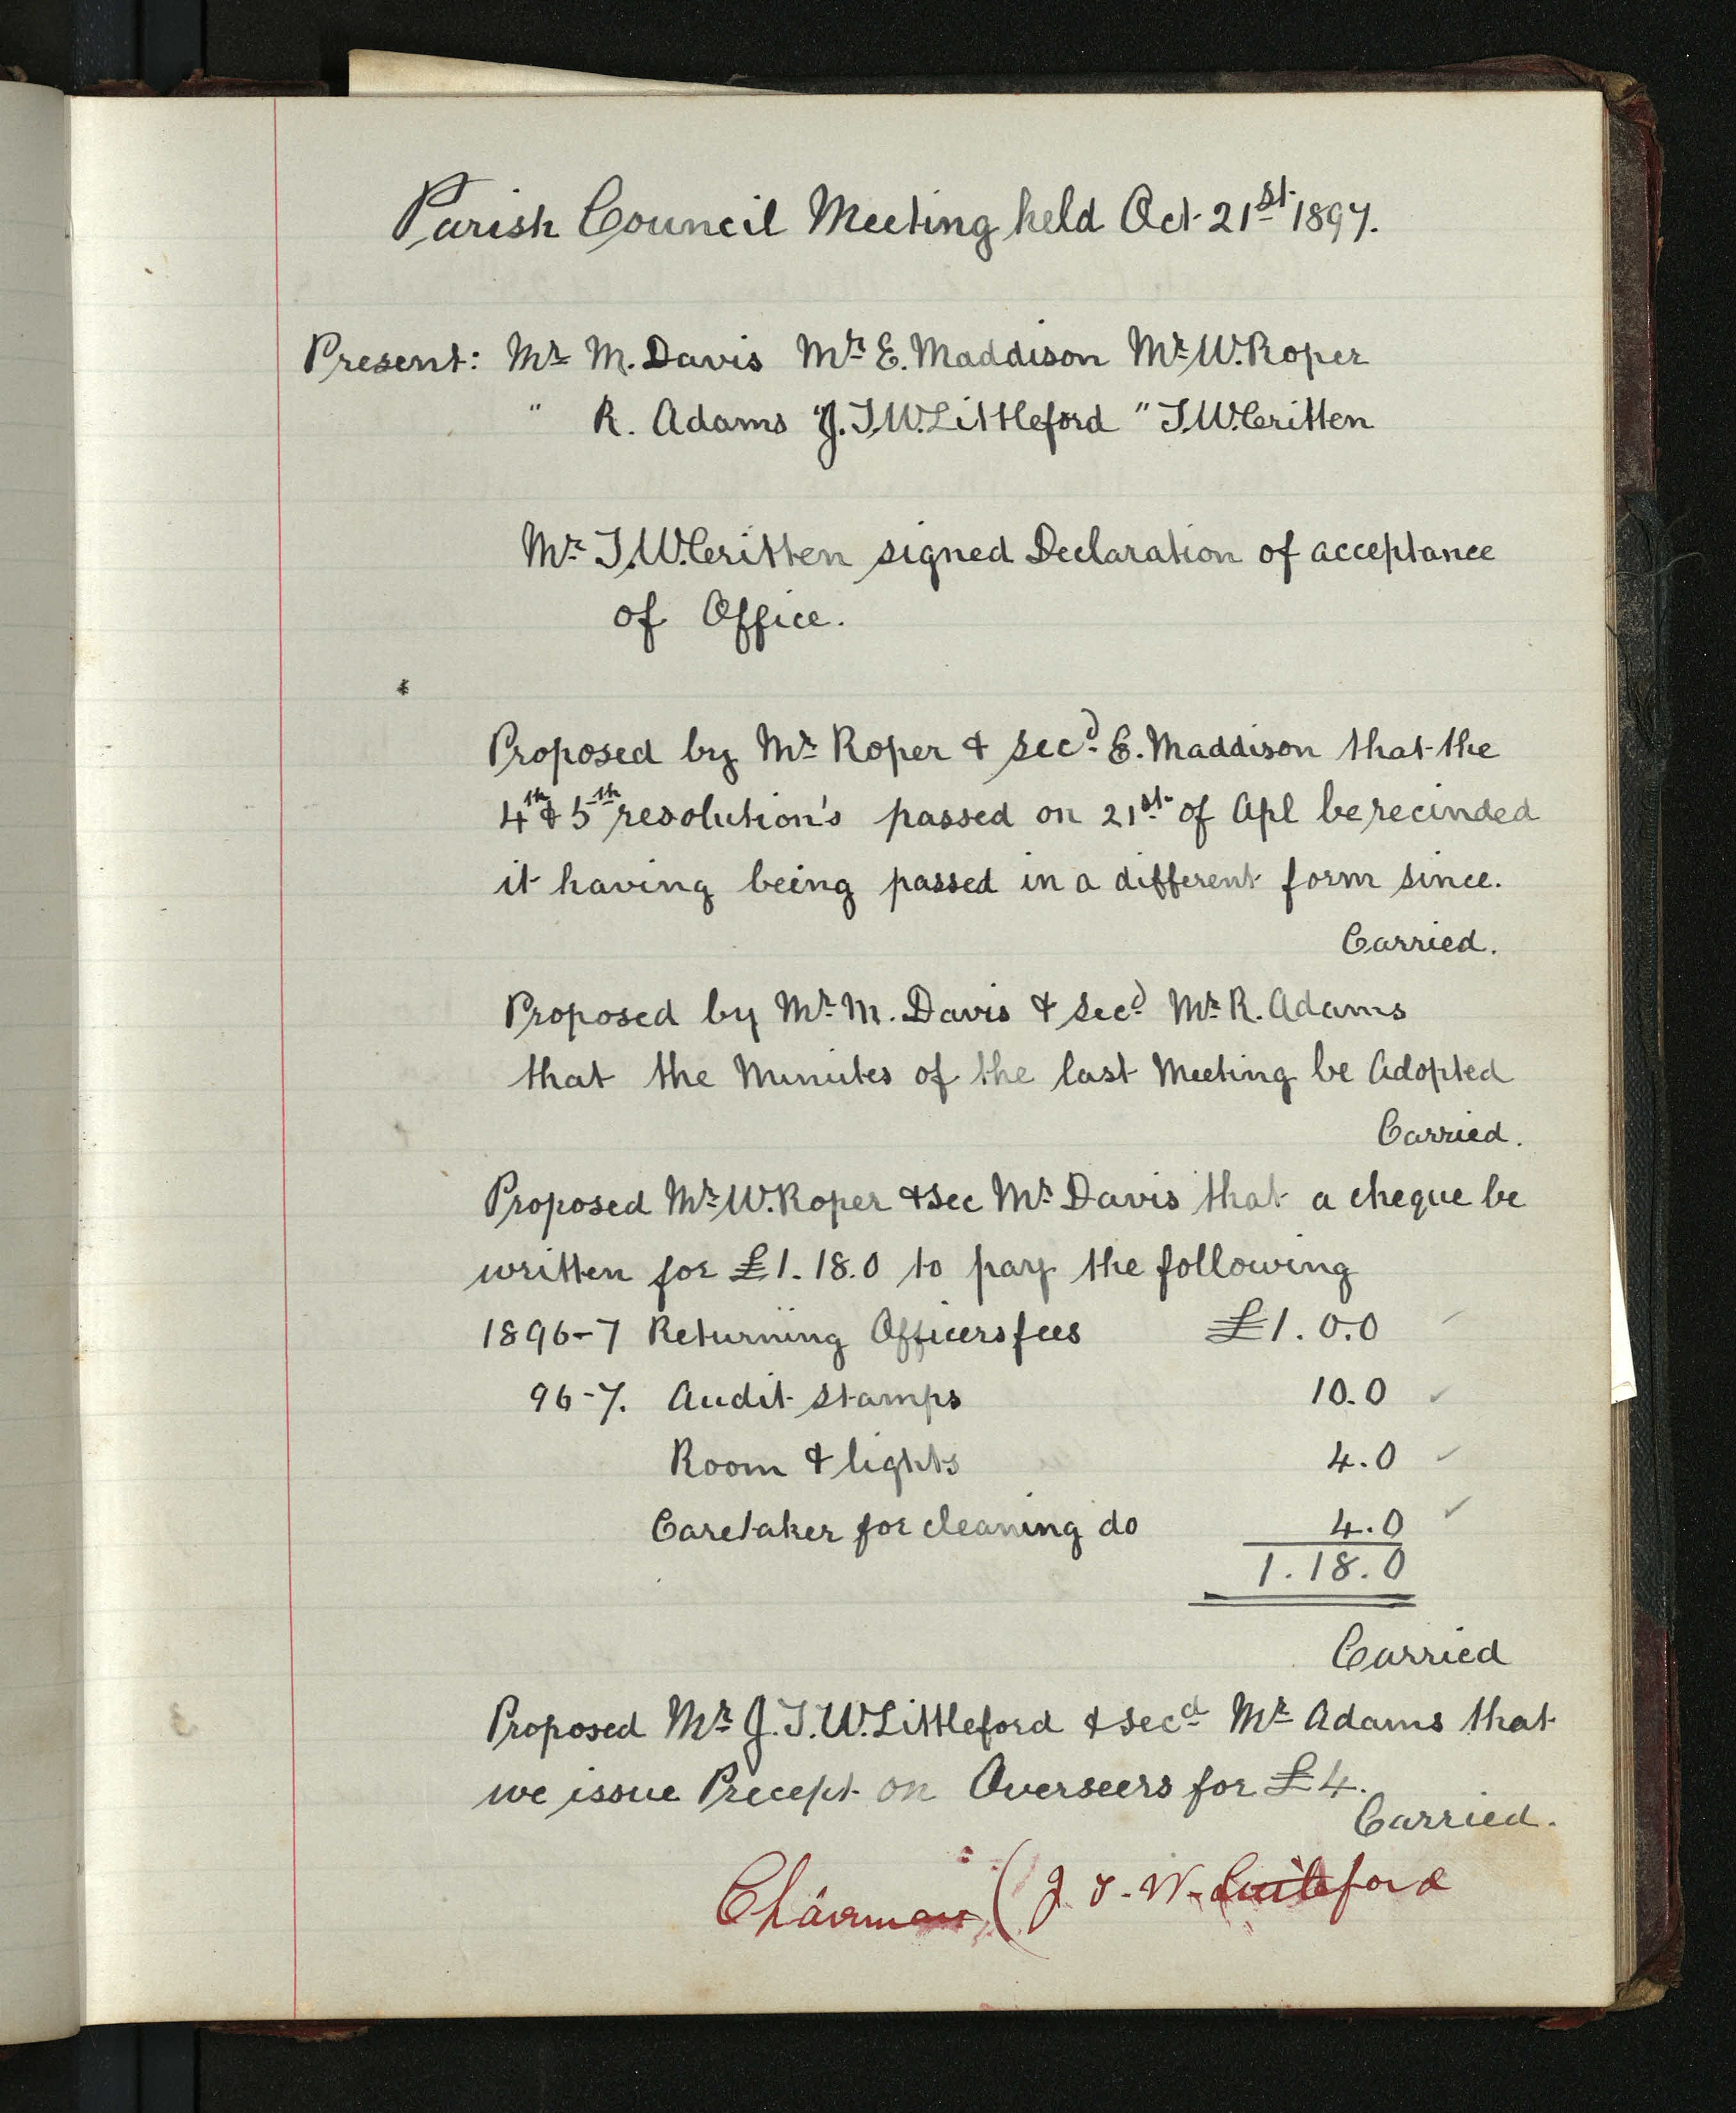 Parish Council Meeting held Oct 21st 1897.
Present: Mr M. Davis Mr E. Maddison Mr W. Roper
" R. Adams " J.T.W. Littleford " T.W. Critten
Mr T.W. Critten signed Declaration of acceptance
of Office.
Proposed by Mr Roper & secd E. Maddison that the
4th & 5th resolution's passed on 21st of Apl be recinded
it having being passed in a different form since.
Carried.
Proposed by Mr M. Davis & secd Mr R. Adams
that the Minutes of the last Meeting be Adopted
Carried.
Proposed Mr W. Roper & sec Mr Davis that a cheque be
written for £1.18.0 to pay the following
1896-7 Returning Officers fees £1.0.0
96-7. Audit stamps 10.0
Room & lights 4.0
Caretaker for cleaning do 4.0
1.18.0
Carried
Proposed Mr J.T.W. Littleford & secd Mr Adams that
we issue Precept on Overseers for £4.
Carried.
Chairman (J. T. W. Littleford